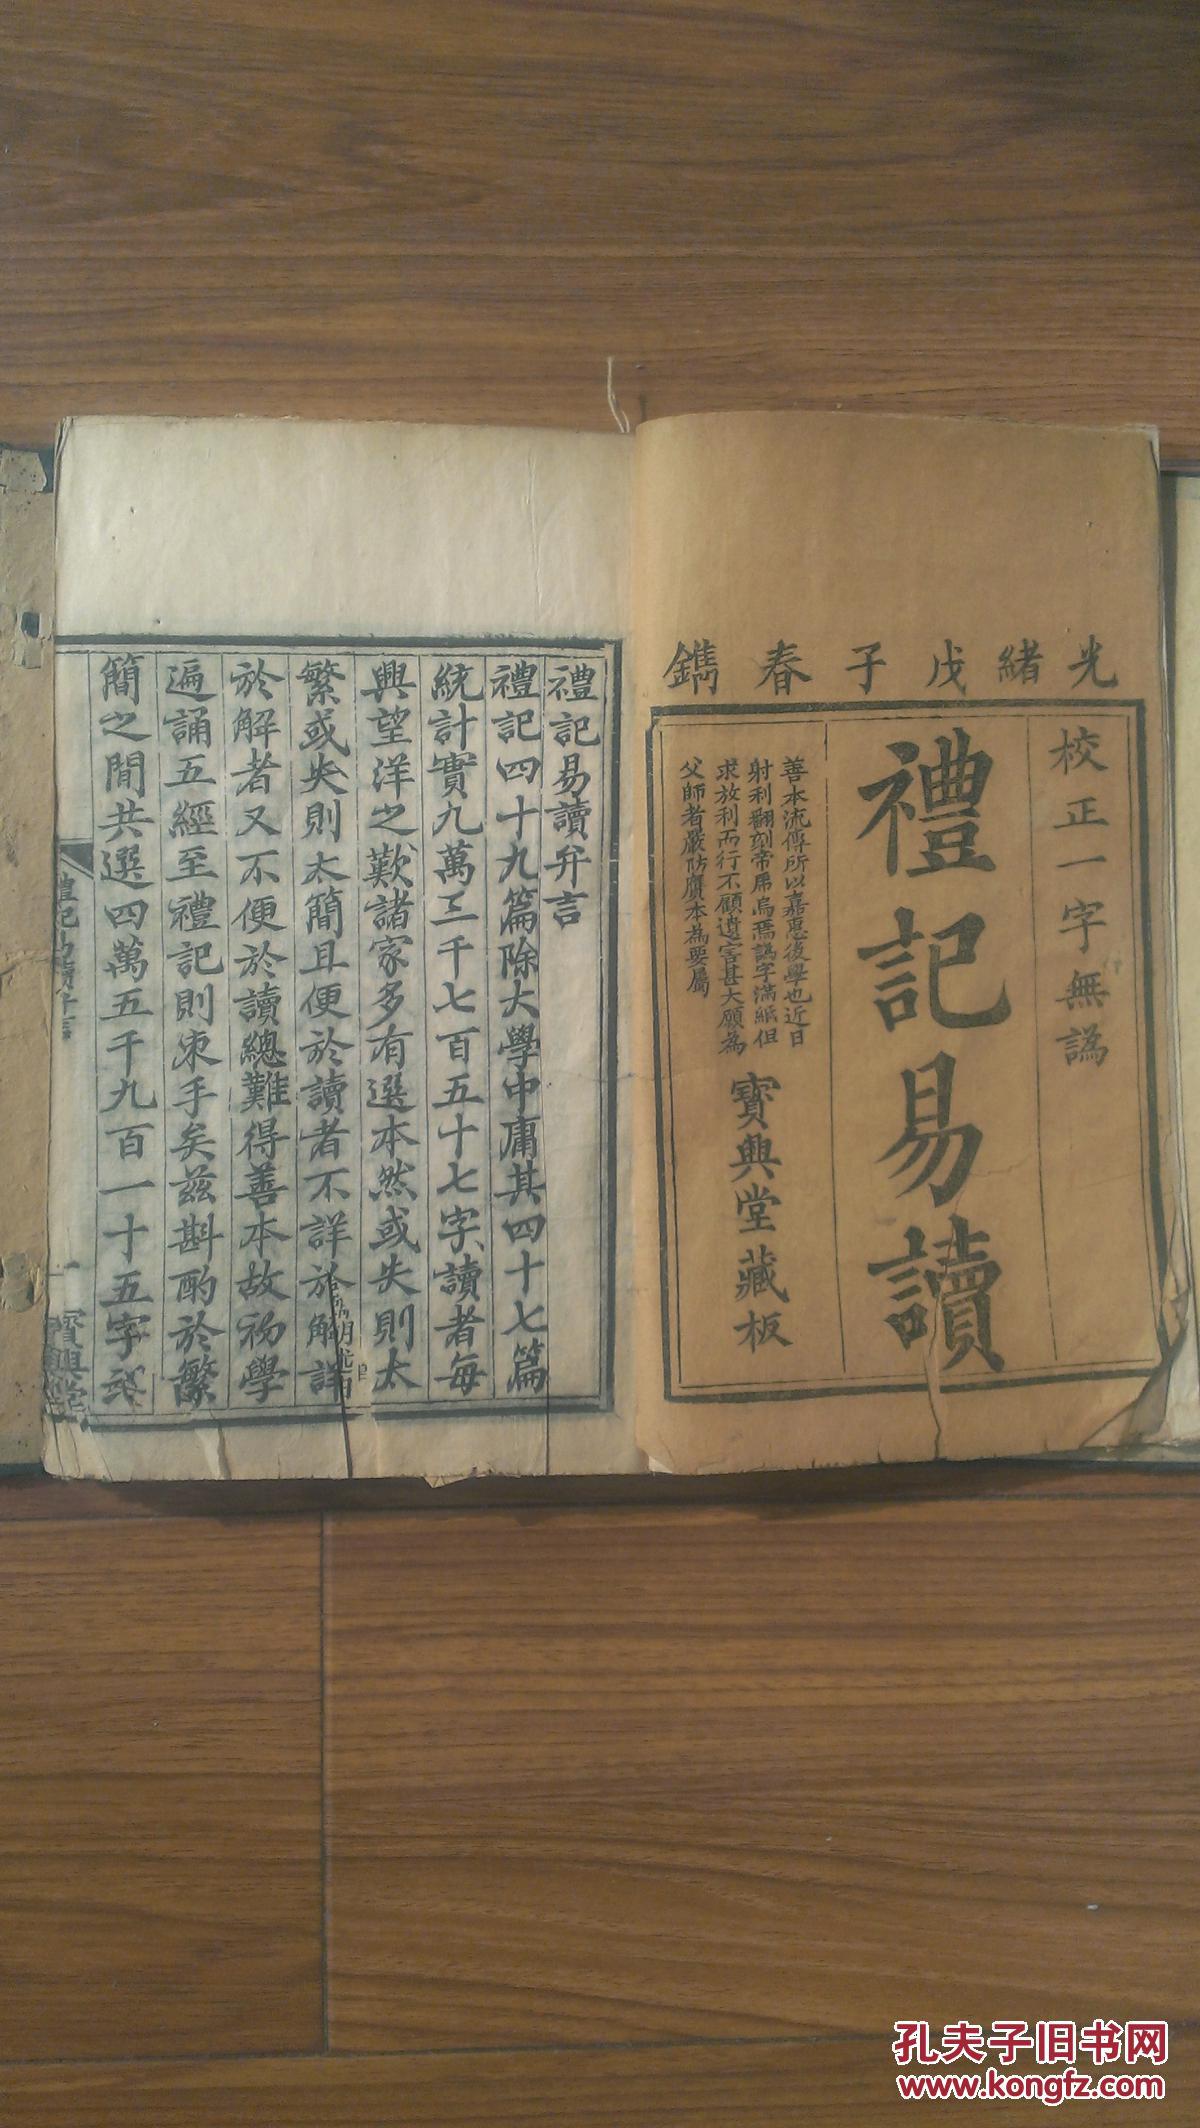 光緒戊子春鐫
校正一字無譌
禮記易讀
善本流傳所以嘉惠後學也近日
射利翻刻帝虎烏焉譌字滿紙但
求放利而行不顧遺害甚大願為
父師者嚴防贗本為要屬
寶興堂藏板
禮記易讀弁言
禮記四十九篇除大學中庸其四十七篇
統計實九萬三千七百五十七字讀者每
興望洋之歎諸家多有選本然或失則太
繁或失則太簡且便於讀者不詳於解詳
於解者又不便於讀總難得善本故初學
遍誦五經至禮記則束手矣茲斟酌於繁
簡之間共選四萬五千九百一十五字
禮記易讀弁言
一
寶興堂
孔夫子旧书网
www.kongfz.com